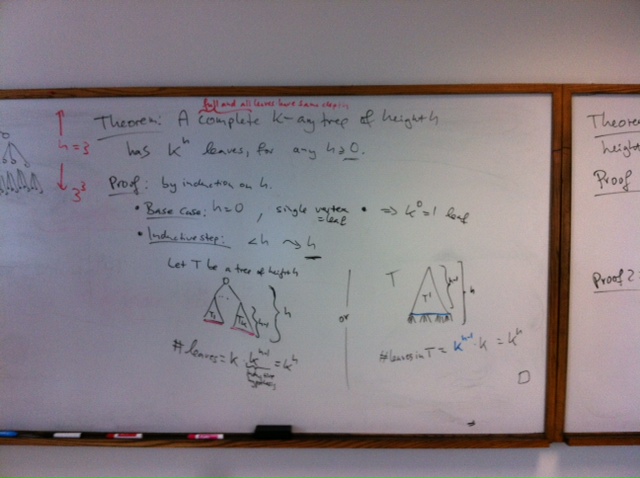 full and all leaves have same depth
Theorem: A complete k-ary tree of height h
has k^h leaves, for any h ≥ 0.
h = 3
3^3
Proof: by induction on h.
• Base Case: h=0, single vertex • ⇒ k^0 = 1 leaf
= leaf
• Inductive step: <h ⤳ h
Let T be a tree of height h
T1 Tk h-1 h
# leaves = k · k^h-1 = k^h
or
T
T' h-1 h
# leaves in T = k^h-1 · k = k^h
□
Theorem
height
Proof
Proof 2: